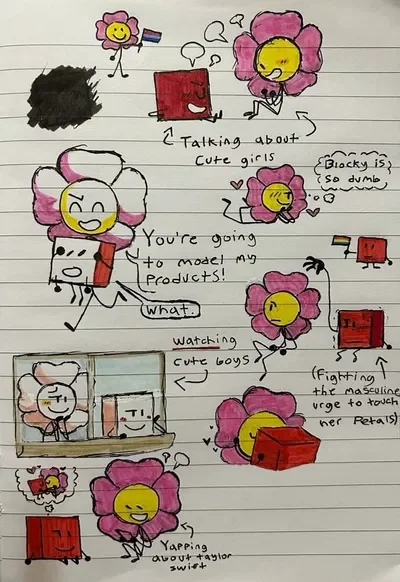 Talking about
cute girls
Blocky is
so dumb
You're going
to model my
products!
What.
Watching
cute boys
(Fighting
the masculine
urge to touch
her petals)
Yapping
about taylor
swift